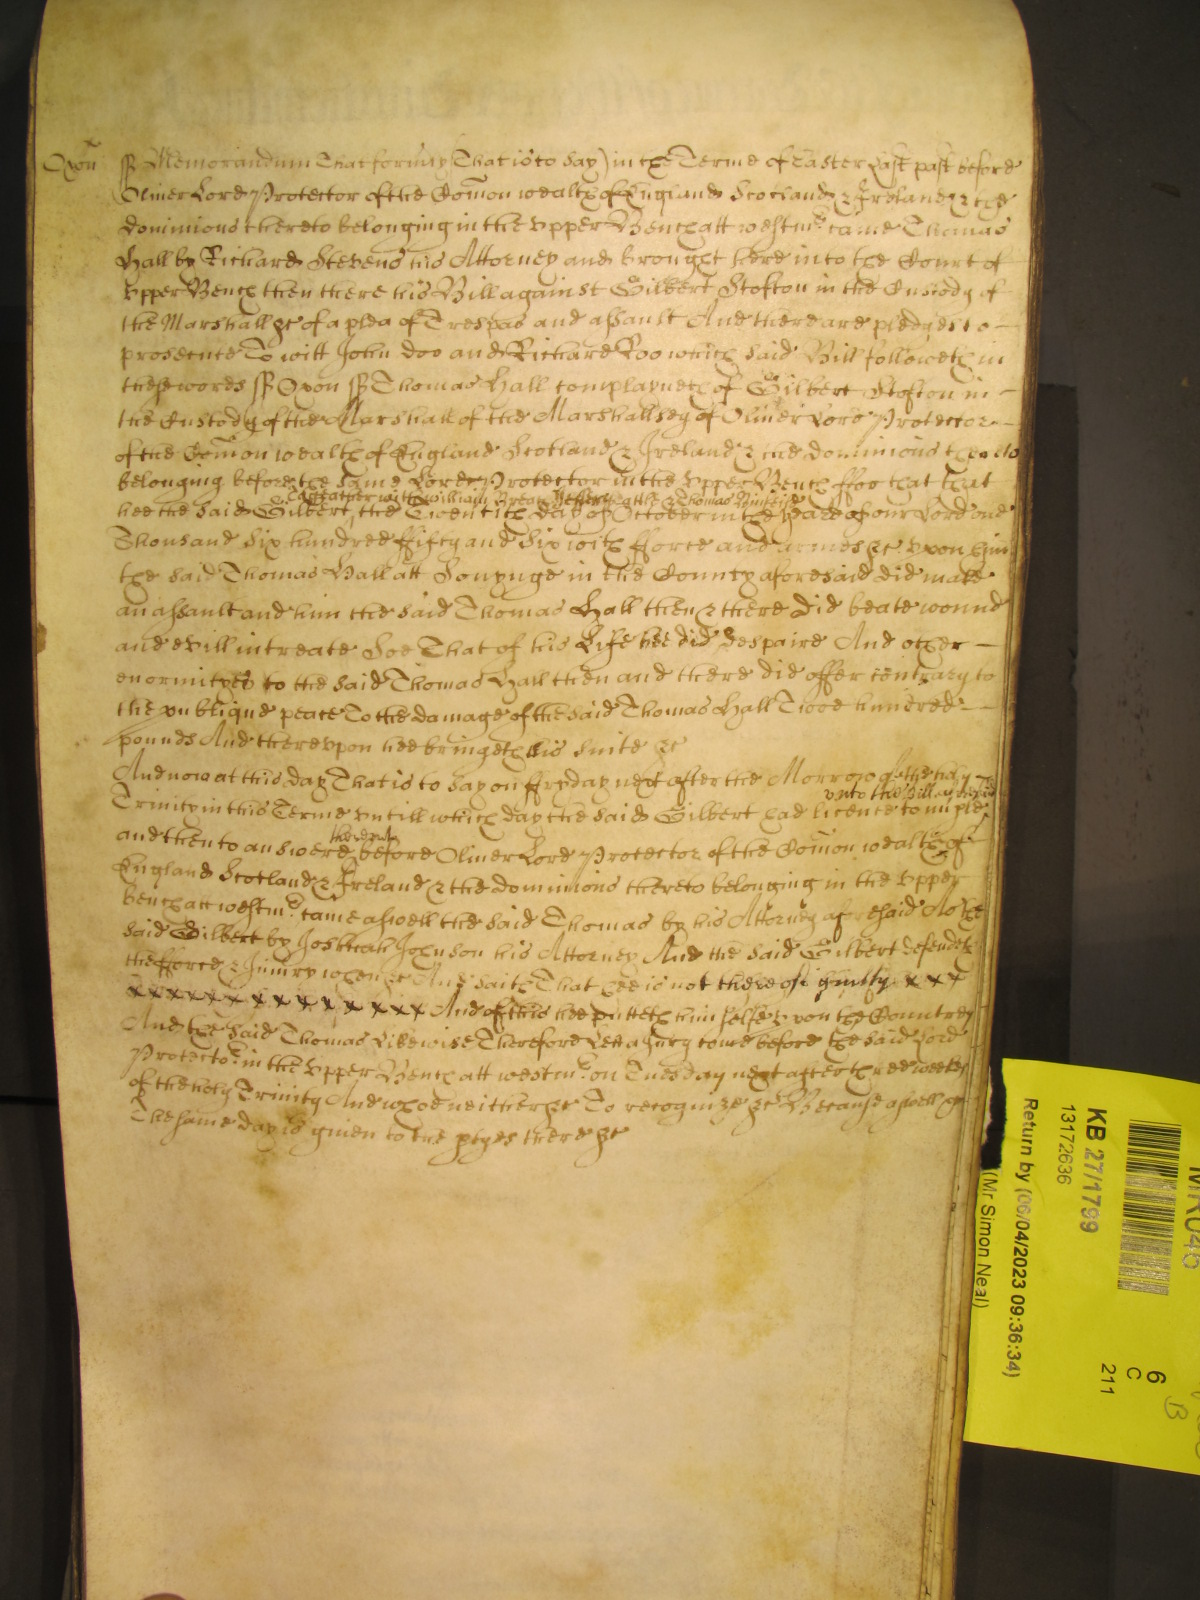 Oxon ss Memorandum That formerly (That is to say) in the Terme of Easter Last past before
Oliver Lord Protector of the Com̄on wealth of England Scotland & Ireland & the
dominions thereto belonging in the vpper Bench att westmr came Thomas
Hall by Richard Stevens his Attorney and brought here into the Court of
vpper Bench then there his Bill against Gilbert Stofton in the Custody of
the Marshall &c of a plea of Trespas and assault And there are pledges to
prosecute To witt John Doo and Richard Roo which said Bill followeth in
these words ss Oxon ss Thomas Hall complayneth of Gilbert Stofton in
the Custody of the Marshall of the Marshallsey of Oliver Lord Protector
of the Com̄on wealth of England Scotland & Ireland & the dominions thereto
belonging before the same Lord Protector in the vpper Bench ffor that that
together with William Jeffery & Thomas
hee the said Gilbert, the Twentith day of October in the yeare of our Lord one
Thousand Six hundred ffifty and Six with fforce and armes &c vpon him
the said Thomas Hall att in the County aforesaid did make
an assault and him the said Thomas Hall then & there did beate wound
and evill intreate Soe That of his Life hee did despaire And other
enormityes to the said Thomas Hall then and there did offer contrary to
the publique peace To the damage of the said Thomas Hall Twoe hundred
pounds And therevpon hee bringeth his suite &c
And now at this day That is to say on ffryday next after the Morrow of the holy
vnto the Bill aforesaid
Trinity in this Terme vntill which day the said Gilbert had licence to imple
therevnto
and then to answere, before Oliver Lord Protector of the Com̄on wealth of
England Scotland & Ireland & the dominions thereto belonging in the vpper
bench att westmr came aswell the said Thomas by his Attorney aforesaid As the
said Gilbert by Joshuah Johnson his Attorney And the said Gilbert defendeth
the fforce & Iniury when &c And saith That hee is not thereof guilty x x x
x x x x x x x x x x x x x And of this hee putteth himselfe vpon the Countrey
And the said Thomas Likewise Therefore Lett a Jury come before the said Lord
Protector in the vpper Bench att westmr on Tuesday next after three weekes
of the holy Trinity And who neither &c To recognize &c Because aswell &c
The same day is giuen to the ptyes there &c
KB 27/1799
13172636
Return by (06/04/2023 09:36:34)
(Mr Simon Neal)
6
C
211
B